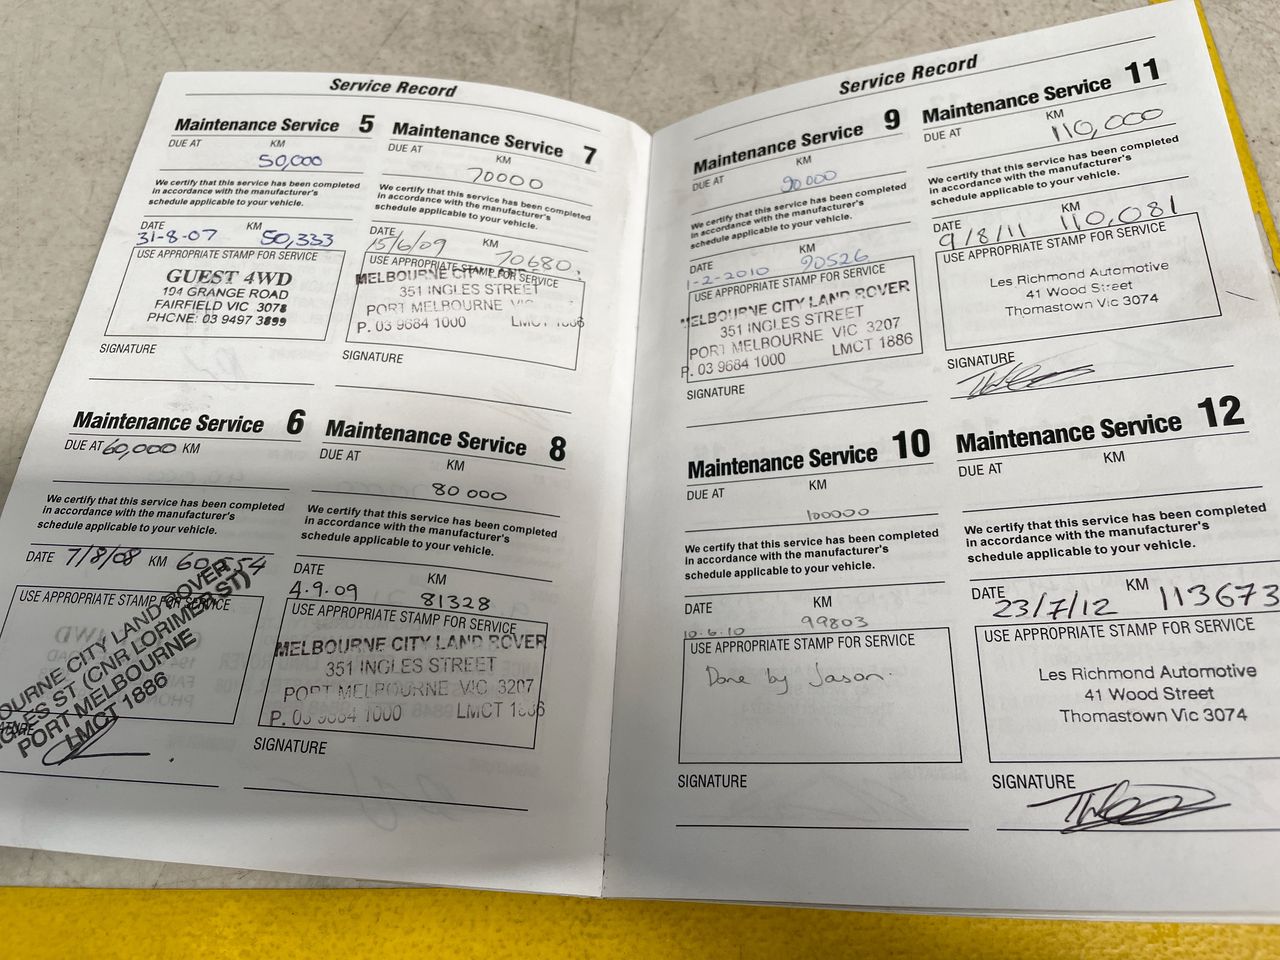 Service Record
Maintenance Service 5
DUE AT KM
50,000
We certify that this service has been completed
in accordance with the manufacturer's
schedule applicable to your vehicle.
DATE KM
31-8-07 50,333
USE APPROPRIATE STAMP FOR SERVICE
GUEST 4WD
194 GRANGE ROAD
FAIRFIELD VIC 3078
PHONE: 03 9497 3899
SIGNATURE
Maintenance Service 6
DUE AT 60,000 KM
We certify that this service has been completed
in accordance with the manufacturer's
schedule applicable to your vehicle.
DATE 7/8/08 KM 60554
USE APPROPRIATE STAMP FOR SERVICE
OURNE CITY LAND ROVER
LES ST (CNR LORIMER ST)
PORT MELBOURNE
LMCT 1886
Maintenance Service 7
DUE AT KM
70000
We certify that this service has been completed
in accordance with the manufacturer's
schedule applicable to your vehicle.
DATE KM
15/6/09 70680.
USE APPROPRIATE STAMP FOR SERVICE
MELBOURNE CITY
351 INGLES STREET
PORT MELBOURNE VIC
P. 03 9684 1000 LMCT 1886
SIGNATURE
Maintenance Service 8
DUE AT KM
80 000
We certify that this service has been completed
in accordance with the manufacturer's
schedule applicable to your vehicle.
DATE KM
4.9.09 81328
USE APPROPRIATE STAMP FOR SERVICE
MELBOURNE CITY LAND ROVER
351 INGLES STREET
PORT MELBOURNE VIC 3207
P. 03 9684 1000 LMCT 1886
SIGNATURE
Service Record
Maintenance Service 9
DUE AT KM
90 000
We certify that this service has been completed
in accordance with the manufacturer's
schedule applicable to your vehicle.
DATE KM
1-2-2010 90526
USE APPROPRIATE STAMP FOR SERVICE
MELBOURNE CITY LAND ROVER
351 INGLES STREET
PORT MELBOURNE VIC 3207
P. 03 9684 1000 LMCT 1886
SIGNATURE
Maintenance Service 10
DUE AT KM
100000
We certify that this service has been completed
in accordance with the manufacturer's
schedule applicable to your vehicle.
DATE KM
10.6.10 99803
USE APPROPRIATE STAMP FOR SERVICE
Done by Jason.
SIGNATURE
Maintenance Service 11
DUE AT KM
110,000
We certify that this service has been completed
in accordance with the manufacturer's
schedule applicable to your vehicle.
DATE KM
9/8/11 110,081
USE APPROPRIATE STAMP FOR SERVICE
Les Richmond Automotive
41 Wood Street
Thomastown Vic 3074
SIGNATURE
Maintenance Service 12
DUE AT KM
We certify that this service has been completed
in accordance with the manufacturer's
schedule applicable to your vehicle.
DATE KM
23/7/12 113673
USE APPROPRIATE STAMP FOR SERVICE
Les Richmond Automotive
41 Wood Street
Thomastown Vic 3074
SIGNATURE